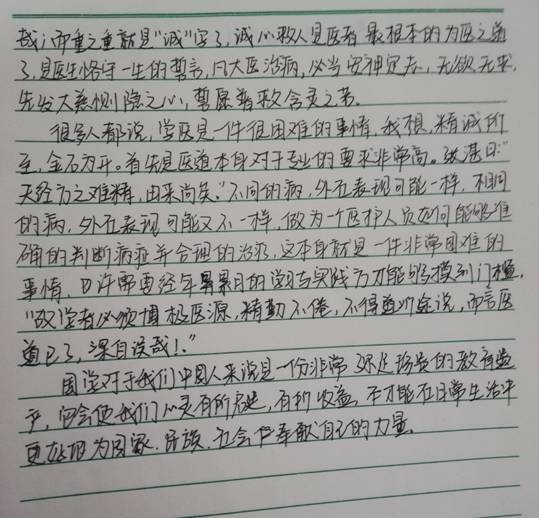 我认而重之重就是“诚”字了，诚心救人是医者最根本的为医之道
了，是医生恪守一生的誓言，凡大医治病，必当安神定志，无欲无求，
先发大慈恻隐之心，誓愿普救含灵之苦。
很多人都说，学医是一件很困难的事情，我想，精诚所
至，金石为开。首先是医道本身对于专业的要求非常高。张湛曰：“
夫经方之难精，由来尚矣。”不同的病，外在表现可能一样，相同
的病，外在表现可能又不一样，做为一个医护人员如何能够准
确的判断病症并合理的治疗，这本身就是一件非常困难的
事情，也许需要经年累月的学习与实践方才能够摸到门槛，
“故学者必须博极医源，精勤不倦，不得道听途说，而言医
道已了，深自误哉！”
国学对于我们中国人来说是一份非常弥足珍贵的教育遗
产，它会使我们心灵有所启迪，有所收益，才能在日常生活中
更好地为国家、民族、社会任奉献自己的力量。